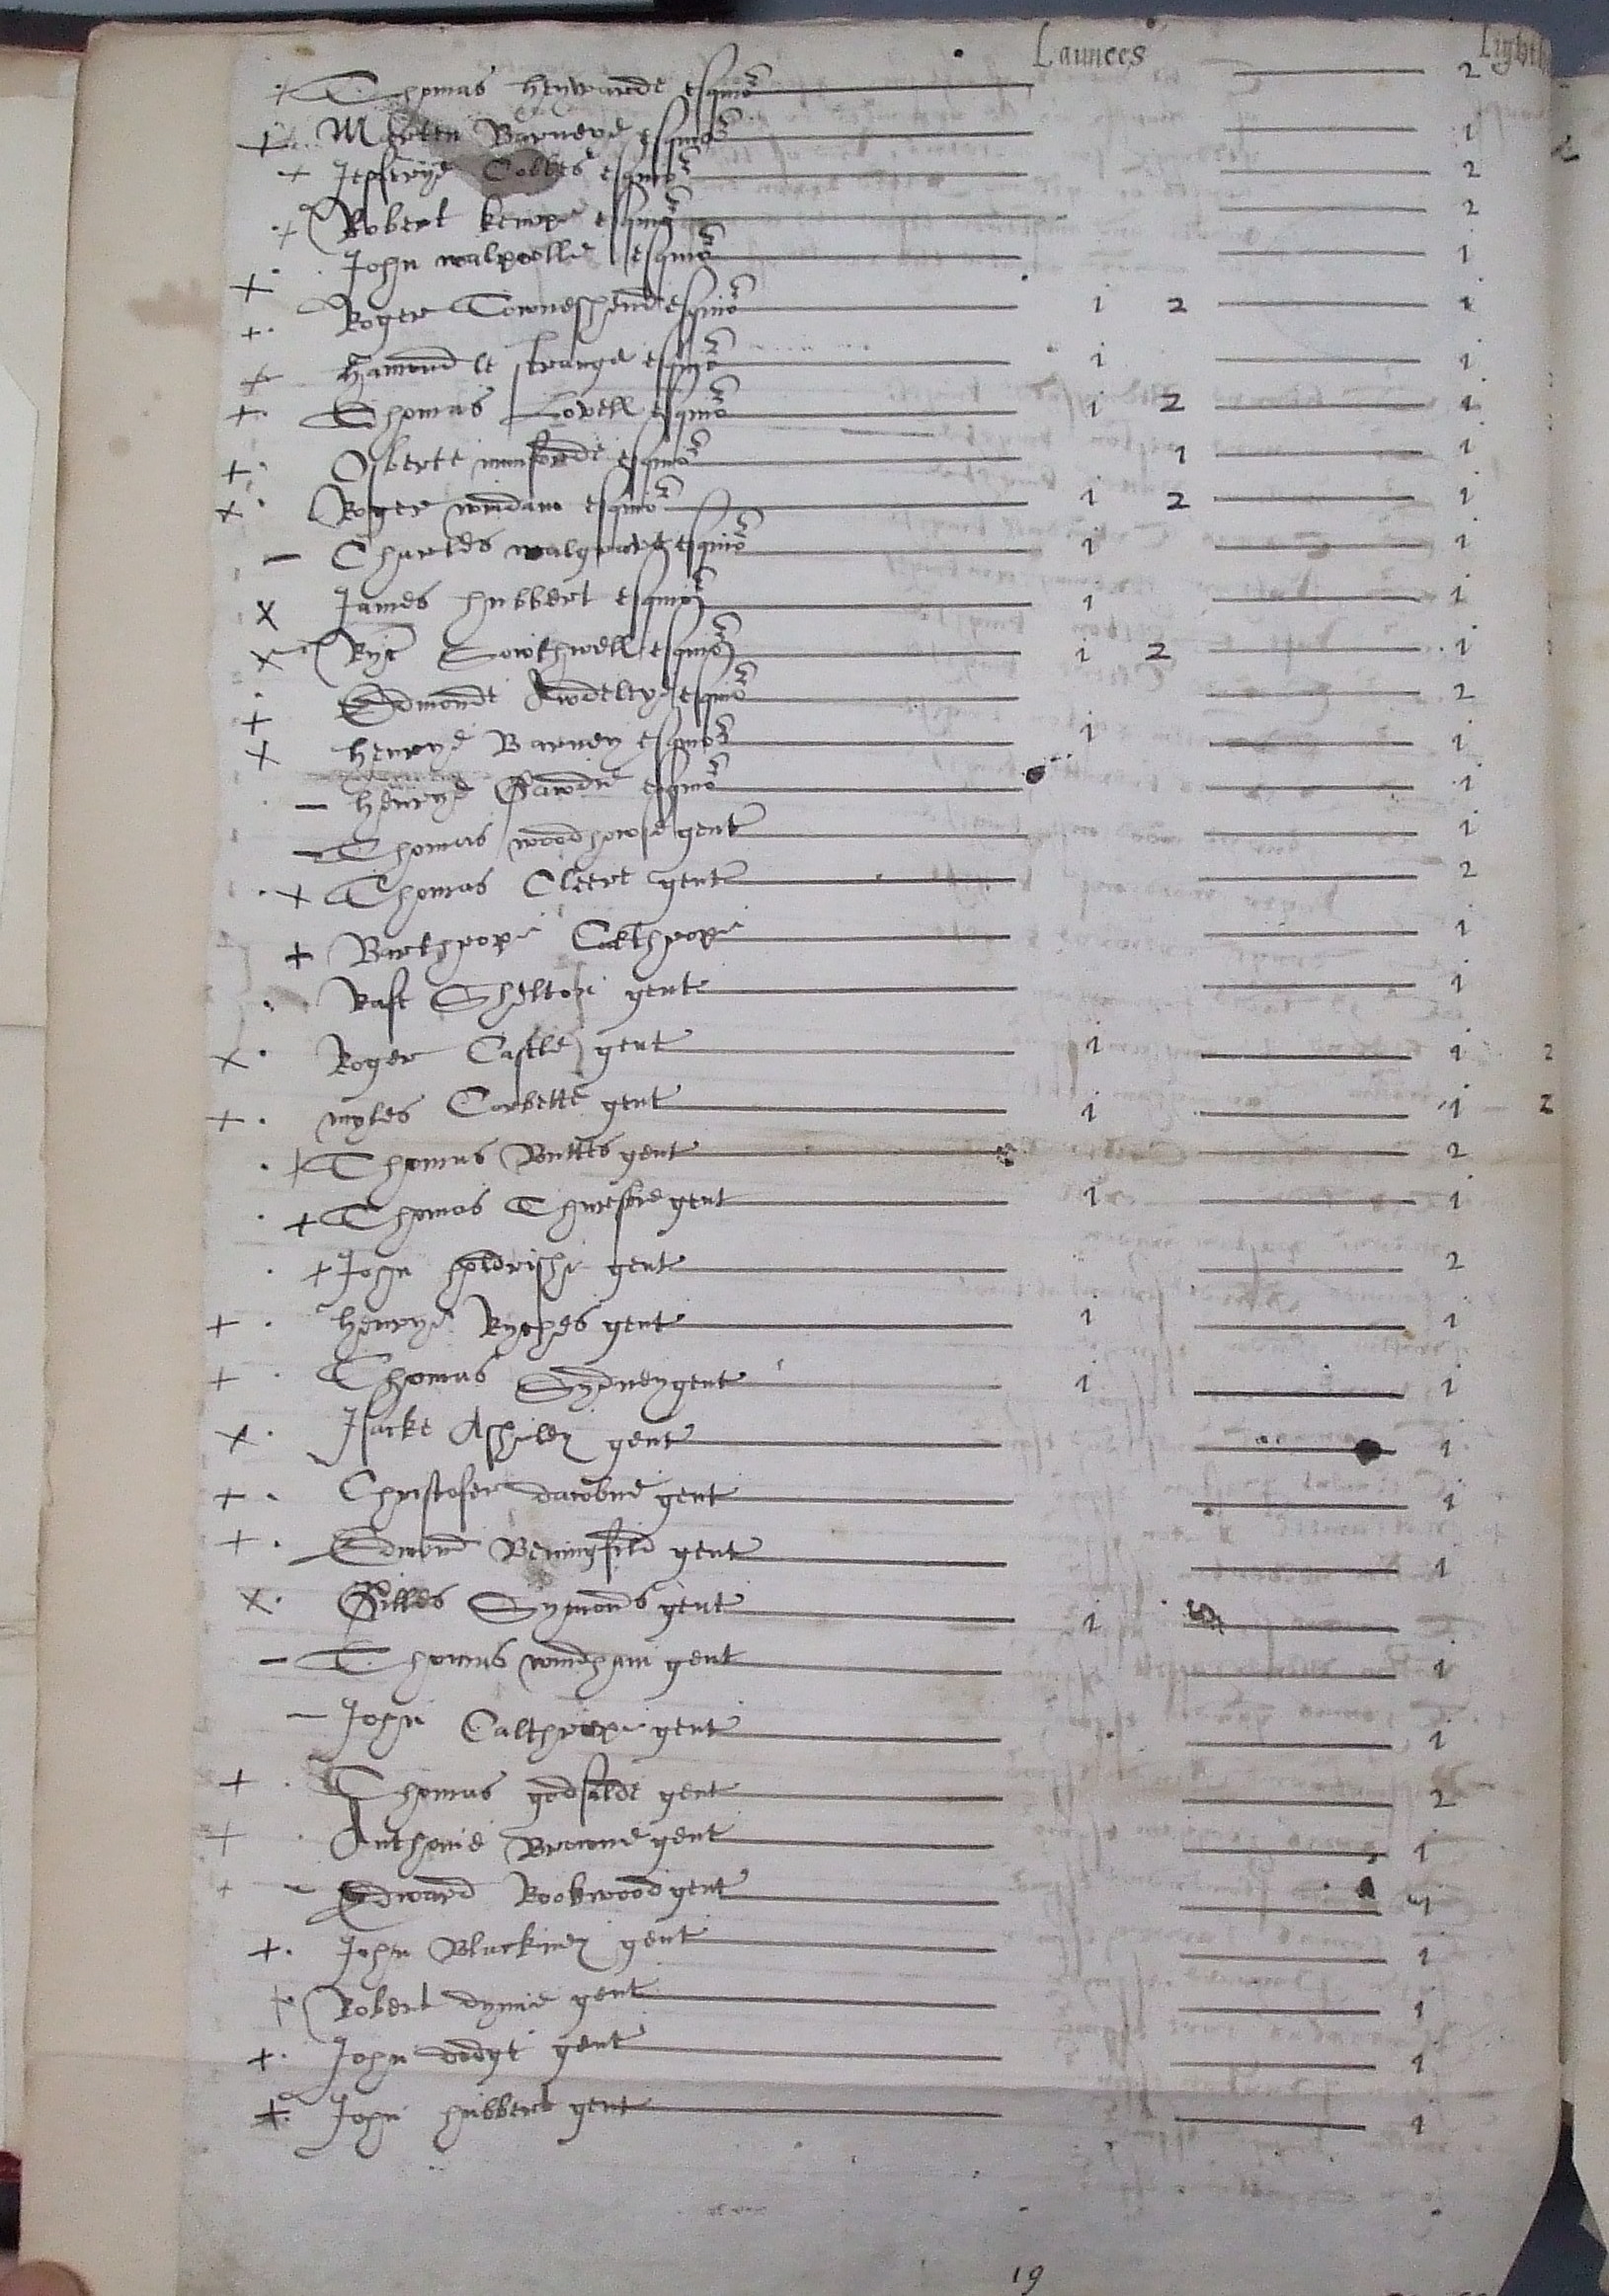 Launces Light
+ Thomas heywarde esquio 2
+ Marten Barneye esquio 1
+ Jeffrye Cobbes esquio 2
+ Robert kempe esquio 2
+ John walpolle esquio 1
+ Roger Towneshende esquio 1 2 1
+ Hamond le strange esquio 1 1
+ Thomas Lovell esquio 1 2 1
+ Osberte munforde esquio 1 1
x Roger windam esquio 1 2 1
– Charles walgrave esquio 1 1
x James hubbert esquio 1 1
x Ryc Sowthwell esquio 1 2 1
+ Edmonde Awdeleye esquio 2
x henrye Barney esquio 1 1
– henrye Gawdie esquio 1
– Thomas woodhowse gent 1
+ Thomas Cleere gent 2
+ Barthrope Calthrope 1
Rafe Shelton gent 1
x Roger Castle gent 1 1 2
+ myles Corbette gent 1 1 2
+ Thomas Buttes gent 2
+ Thomas Thursbie gent 1 1
+ John holdrishe gent 2
+ henrye Ryches gent 1 1
+ Thomas Sydney gent 1 1
x Isacke Asheley gent 1
+ Christofer dawbne gent 1
+ Edmond Beningfild gent 1
x Gilles Symonds gent 1
– Thomas windham gent 1
– John Calthrope gent 1
+ Thomas godsalde gent 2
+ Anthonie Browne gent 1
+ Edward Rookwood gent 1
+ John Blackney gent 1
+ Robert dynne gent 1
+ John dodge gent 1
+ John hubbert gent 1
19